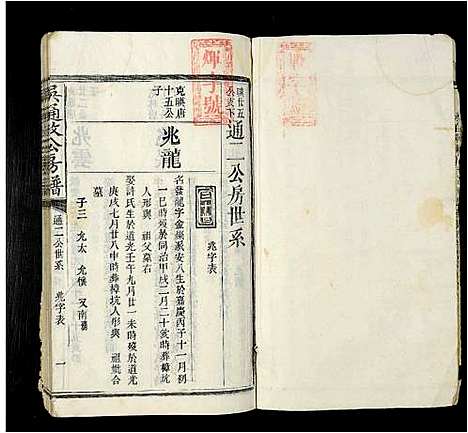 煇字號
通二公房世系
兆字表
兆龍
名發龍字金縷派安八生於嘉慶丙子十一月初
一巳時歿於同治甲戌二月二十亥時葬樟坑
人形與 祖父墓右
娶詩氏生於道光壬午九月廿一未時歿於道光
庚戌七月廿八申時葬樟坑人形與 祖妣合
墓
子三 九太 九候 又南
公房譜
通二公世系
兆字表
一